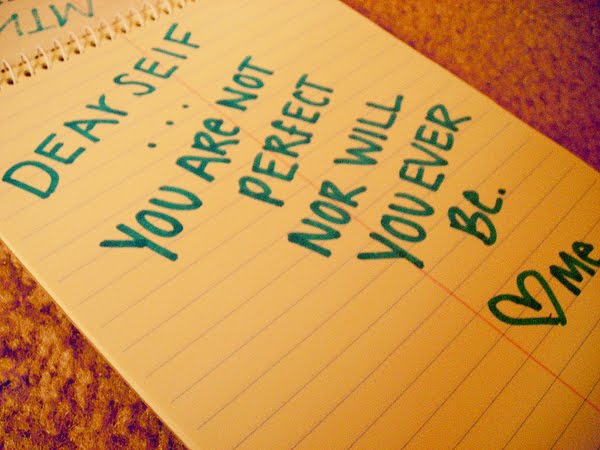 DEAr SElF
...
YOU ARe NOT
PERfECT
NOR WILL
YOU EVER
Be.
♡ Me